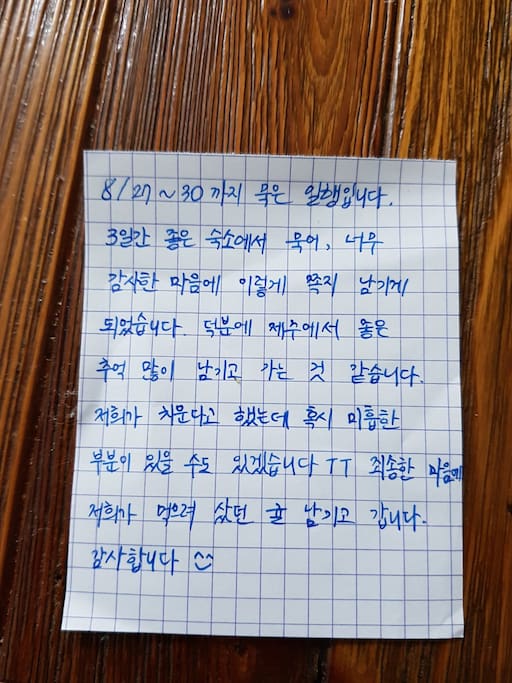 8/27 ~ 30까지 묵은 일행입니다.
3일간 좋은 숙소에서 묵어, 너무
감사한 마음에 이렇게 쪽지 남기게
되었습니다. 덕분에 제주에서 좋은
추억 많이 남기고 가는 것 같습니다.
저희가 치운다고 했는데 혹시 미흡한
부분이 있을 수도 있겠습니다 TT 죄송한 마음에
저희가 먹으려 샀던 귤 남기고 갑니다.
감사합니다 ^^